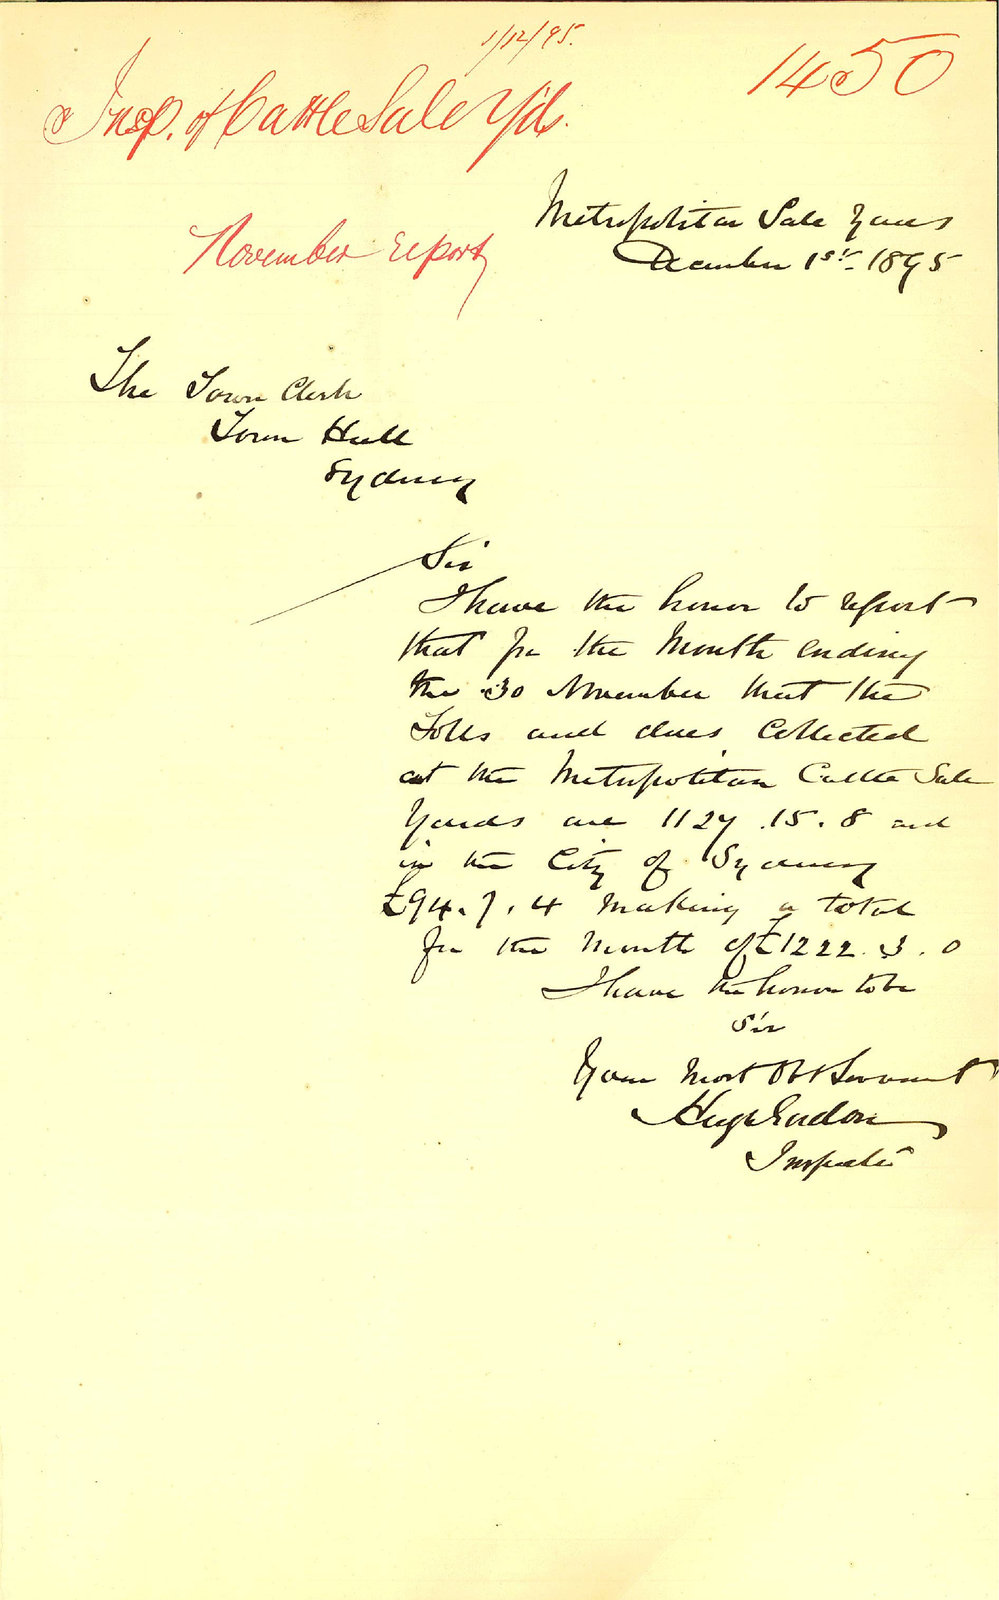 1/12/95.
1450
Insp. of Cattle Sale Yds.
November Report
Metropolitan Sale Yards
December 1st. 1895
The Town Clerk
Town Hall
Sydney
Sir
I have the honor to report
that for the Month ending
the 30 November that the
Tolls and dues Collected
at the Metropolitan Cattle Sale
Yards are 1127.15.8 and
in the City of Sydney
£94.7.4 Making a total
for the Month of £1222.3.0
I have the honor to be
Sir
Your Most Obt Servant
Hugh
Inspector